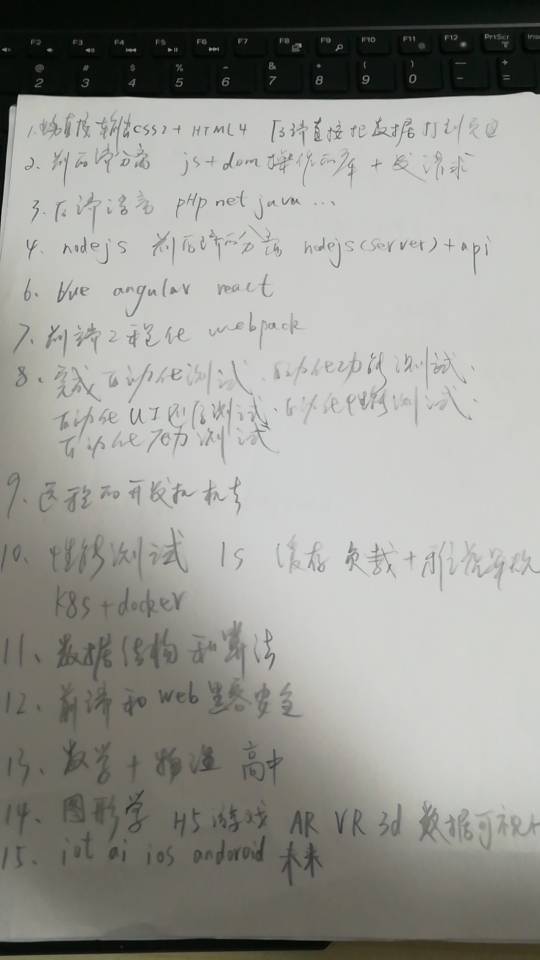 F2 F3 F4 F5 F6 F7 F8 F9 F10 F11 F12 PrtScr
@ # $ % ^ & * ( ) _
2 3 4 5 6 7 8 9 0 -
1. 直接输出CSS2 + HTML4 后端直接把数据打到页面
2. 前后端分离 js + dom操作的库 + 发请求
3. 后端语言 php net java ...
4. nodejs 前后端的分离 nodejs(server) + api
6. vue angular react
7. 前端工程化 webpack
8. 完成自动化测试、自动化功能测试、
自动化UI测试、自动化性能测试、
自动化压力测试
9. 远程的开发机
10. 性能测试 1s 缓存 负载 +
K8s + docker
11、数据结构和算法
12、前端和web 安全
13、数学 + 物理 高中
14、图形学 H5游戏 AR VR 3d 数据可视
15、iot ai ios andoroid 未来